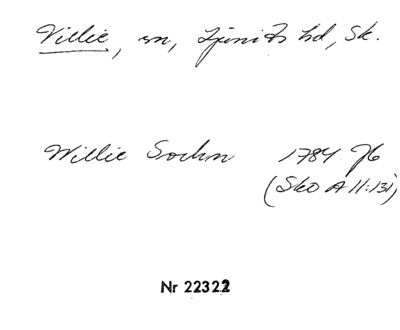 Villie, sn, Ljunits hd, Sk.
Willie Sochn 1784 Jb
(Sko A II:131)
Nr 22322